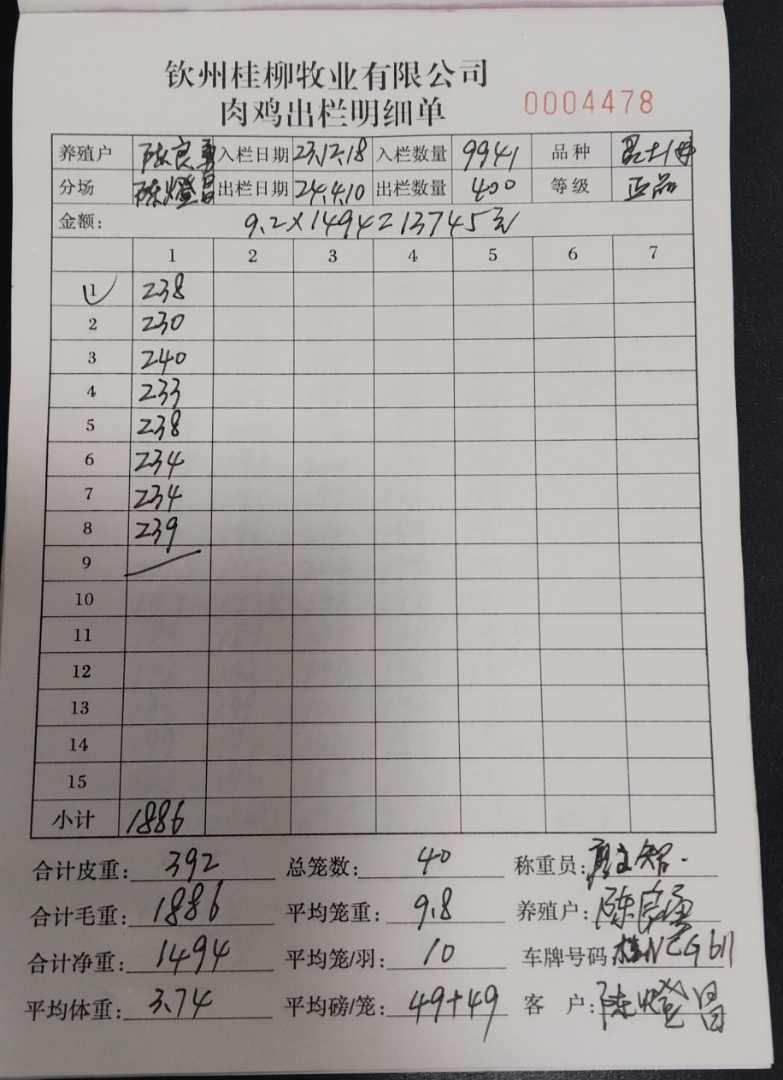 钦州桂柳牧业有限公司
肉鸡出栏明细单 0004478
养殖户 陈良勇 入栏日期 23.12.18 入栏数量 9941 品种
分场 陈燈昌 出栏日期 24.4.10 出栏数量 400 等级 正品
金额: 9.2×1494=13745元
1 2 3 4 5 6 7
1 238
2 230
3 240
4 233
5 238
6 234
7 234
8 239
9
10
11
12
13
14
15
小计 1886
合计皮重: 392 总笼数: 40 称重员:
合计毛重: 1886 平均笼重: 9.8 养殖户: 陈良勇
合计净重: 1494 平均笼/羽: 10 车牌号码: 桂NCG611
平均体重: 3.74 平均磅/笼: 49+49 客 户: 陈燈昌